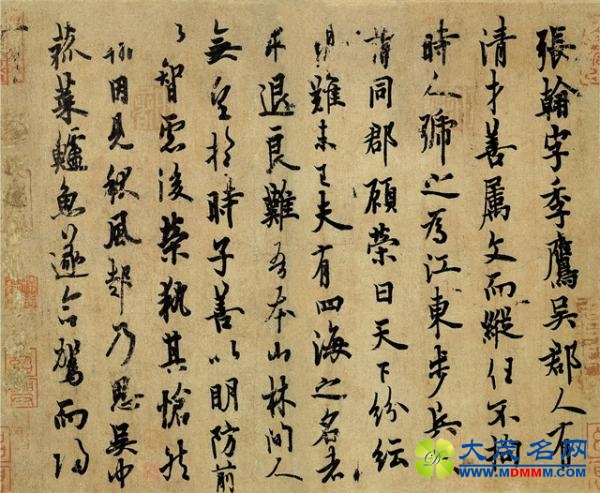 張翰字季鷹吳郡人有
清才善属文而縱任不拘
時人號之為江東步兵
謂同郡顧榮曰天下紛紜
難未已夫有四海之名者
求退良難吾本山林間人
無望於時子善以明防前
以智慮後榮執其愴然
翰因見秋風起乃思吳中
菰菜鱸魚遂命駕而歸
大茂名网
WWW.MDMMM.COM